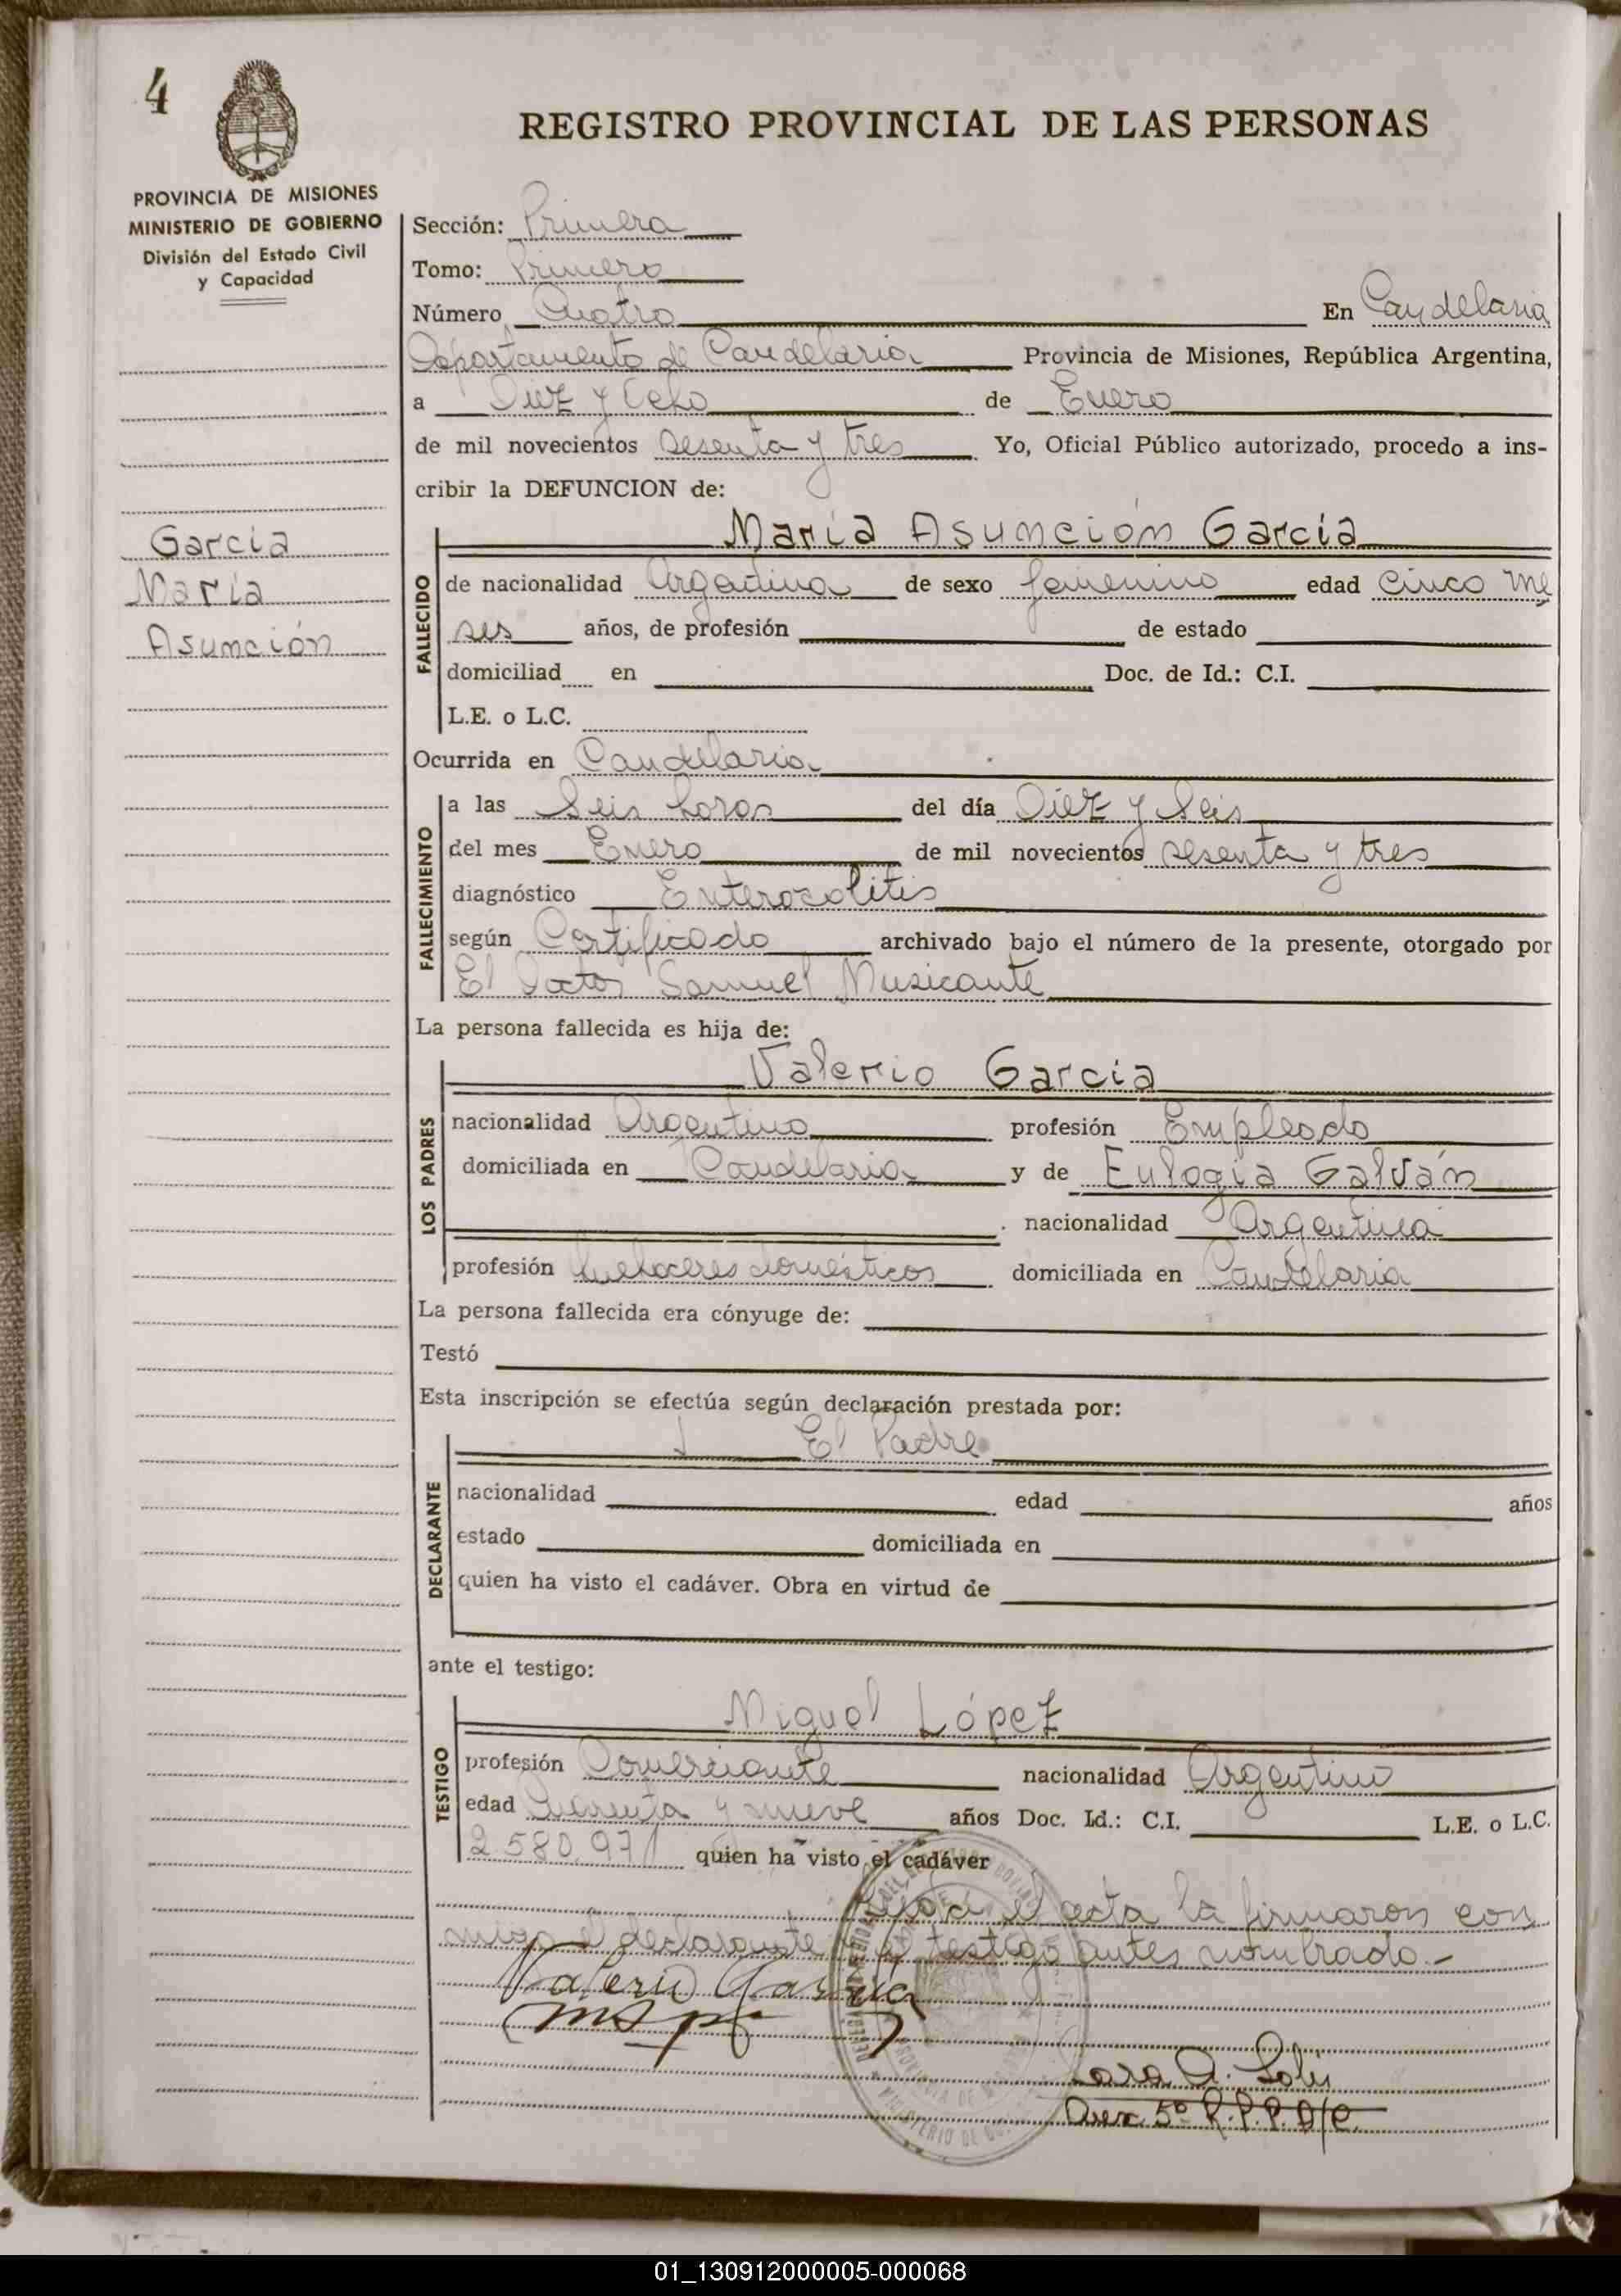 4
REGISTRO PROVINCIAL DE LAS PERSONAS
PROVINCIA DE MISIONES
MINISTERIO DE GOBIERNO
División del Estado Civil
y Capacidad
García
María
Asunción
Sección: Primera
Tomo: Primero
Número Cuatro En Candelaria
Departamento de Candelaria Provincia de Misiones, República Argentina,
a Diez y Ocho de Enero
de mil novecientos sesenta y tres Yo, Oficial Público autorizado, procedo a ins-
cribir la DEFUNCION de:
María Asunción García
FALLECIDO
de nacionalidad Argentina de sexo femenino edad cinco me
ses años, de profesión de estado
domiciliad en Doc. de Id.: C.I.
L.E. o L.C.
Ocurrida en Candelaria
FALLECIMIENTO
a las Seis horas del día Diez y Seis
del mes Enero de mil novecientos sesenta y tres
diagnóstico Enterocolitis
según Certificado archivado bajo el número de la presente, otorgado por
El Doctor Samuel Musicante
La persona fallecida es hija de:
Valerio García
LOS PADRES
nacionalidad Argentino profesión Empleado
domiciliada en Candelaria y de Eulogia Galván
nacionalidad Argentina
profesión quehaceres domésticos domiciliada en Candelaria
La persona fallecida era cónyuge de:
Testó
Esta inscripción se efectúa según declaración prestada por:
El Padre
DECLARANTE
nacionalidad edad años
estado domiciliada en
quien ha visto el cadáver. Obra en virtud de
ante el testigo:
Miguel López
TESTIGO
profesión Comerciante nacionalidad Argentino
edad Cuarenta y nueve años Doc. Id.: C.I. L.E. o L.C.
2.580.971 quien ha visto el cadáver
el acta la firmaron con
migo el declarante y el testigo antes nombrado.-
Valerio García
01_130912000005-000068